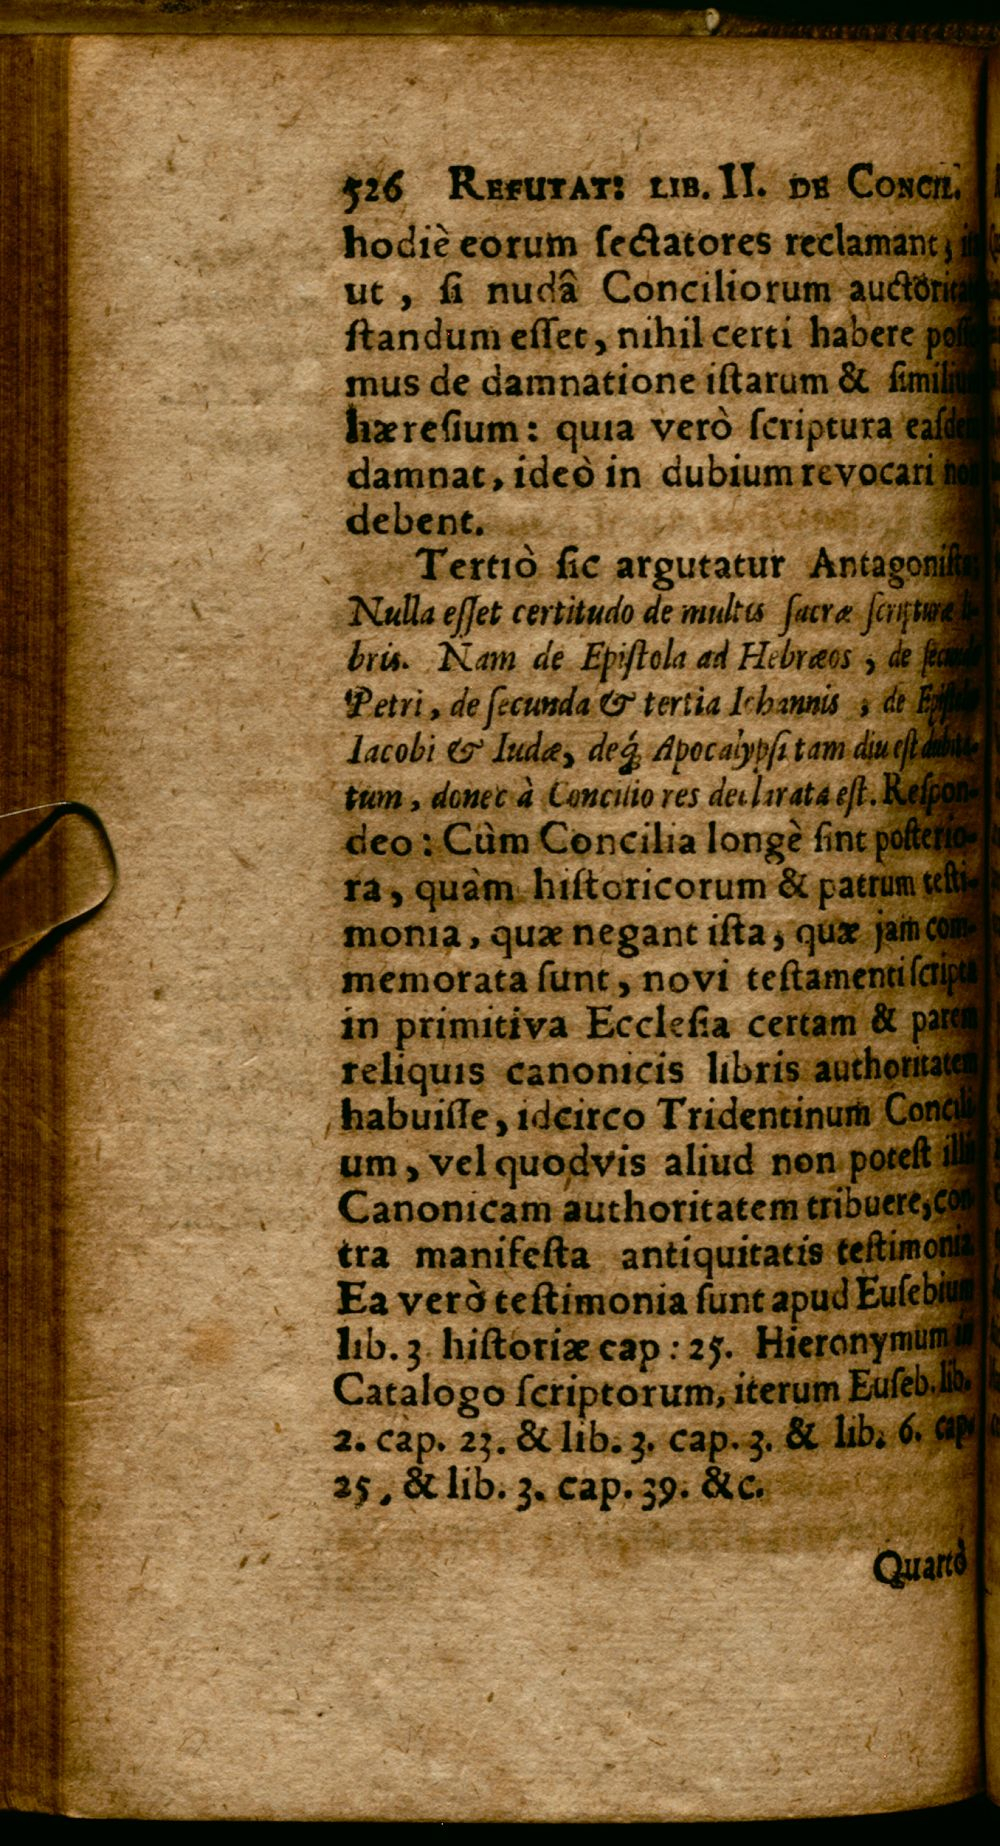 526 REFUTAT: LIB. II. DE CONCIL.
hodiè eorum ſectatores reclamant,
ut, ſi nudâ Conciliorum auctorita
ſtandum eſſet, nihil certi habere poſſe
mus de damnatione iſtarum & ſimilium
hæreſium: quia verò ſcriptura eaſdem
damnat, ideò in dubium revocari non
debent.
Tertiò ſic argutatur Antagoniſta:
Nulla eſſet certitudo de multis ſacræ ſcripturæ li-
bris. Nam de Epiſtola ad Hebræos, de ſecunda
Petri, de ſecunda & tertia Iohannis, de Epiſtola
Iacobi & Iudæ, deq́; Apocalypſi tam diu eſt dubita-
tum, donec à Concilio res declarata eſt. Reſpon-
deo: Cùm Concilia longè ſint poſterio-
ra, quàm hiſtoricorum & patrum teſti-
monia, quæ negant iſta, quæ jam com-
memorata ſunt, novi teſtamenti ſcripta
in primitiva Eccleſia certam & parem
reliquis canonicis libris authoritatem
habuiſſe, idcirco Tridentinum Concili
um, vel quodvis aliud non poteſt illis
Canonicam authoritatem tribuere, con
tra manifeſta antiquitatis teſtimonia
Ea verò teſtimonia ſunt apud Euſebium
lib. 3 hiſtoriæ cap: 25. Hieronymum in
Catalogo ſcriptorum, iterum Euſeb. lib.
2. cap. 23. & lib. 3. cap. 3. & lib. 6. cap.
25, & lib. 3. cap. 39. &c.
Quartò